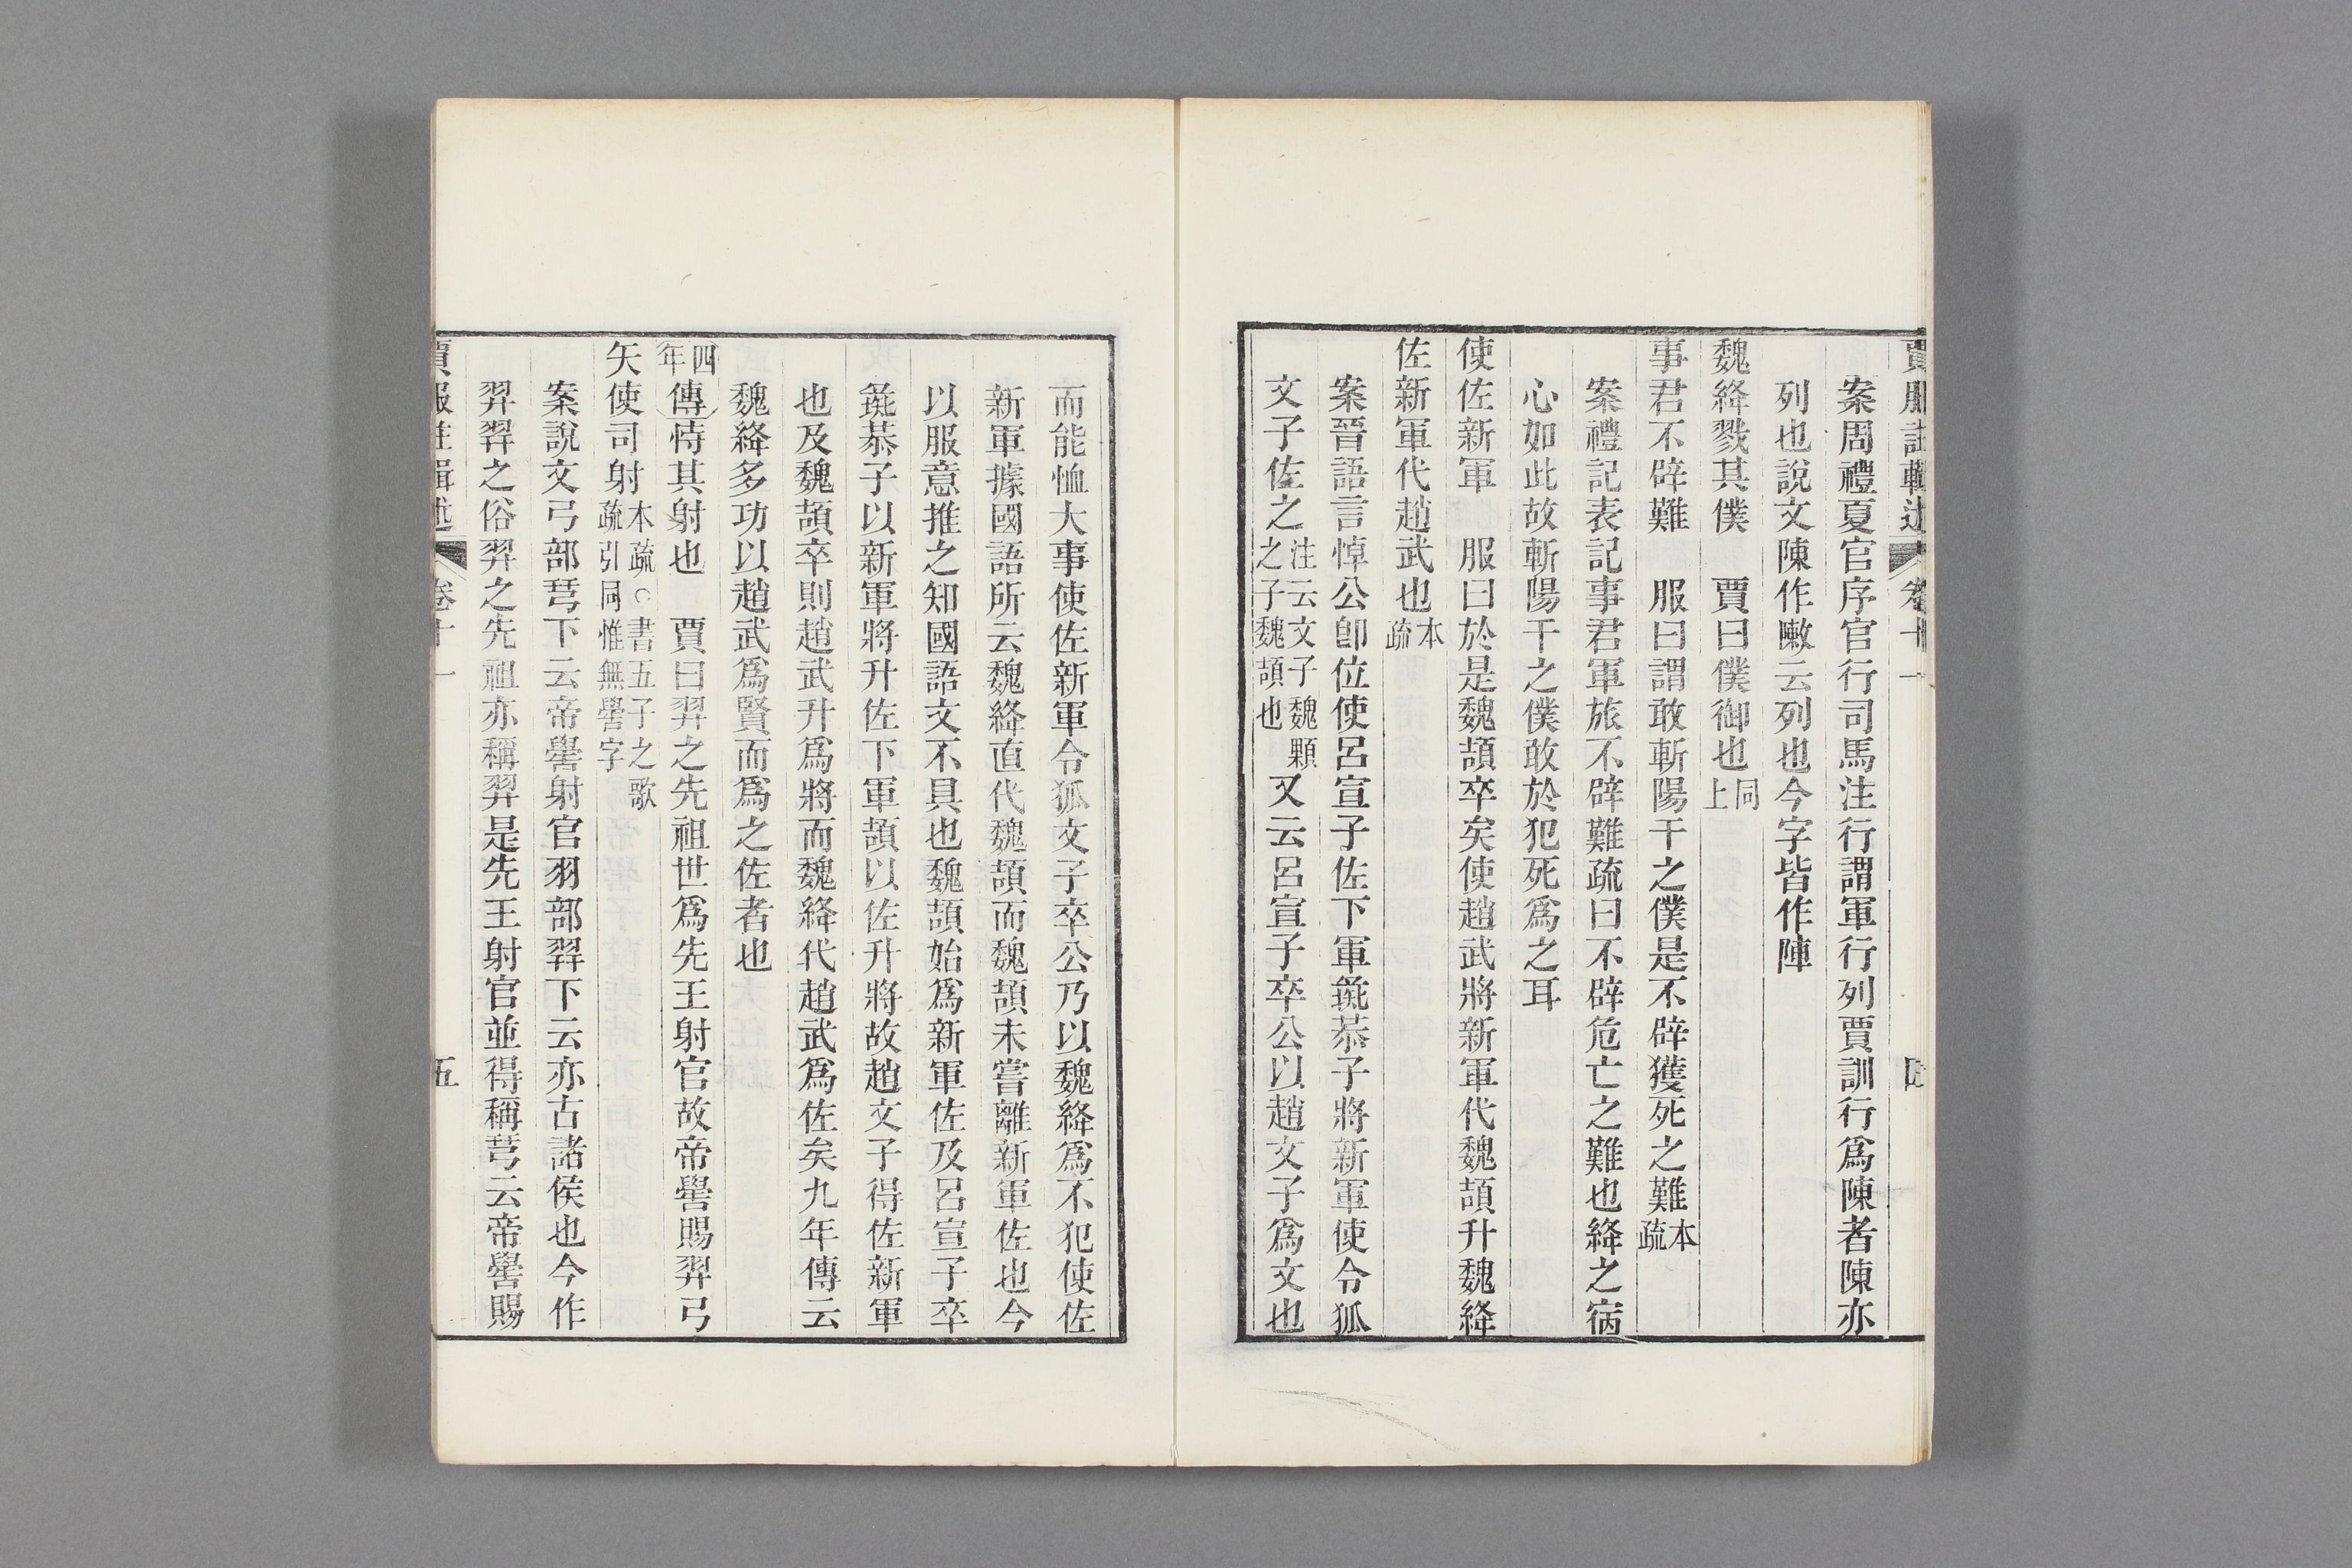 案周禮夏官序官行司馬注行謂軍行列賈訓行爲陳者陳亦
列也說文陳作敶云列也今字皆作陣
魏絳戮其僕　賈曰僕御也同上
事君不辟難　服曰謂敢斬陽干之僕是不辟獲死之難本疏
案禮記表記事君軍旅不辟難疏曰不辟危亡之難也絳之宿
心如此故斬陽干之僕敢於犯死爲之耳
使佐新軍　服曰於是魏頡卒矣使趙武將新軍代魏頡升魏絳
佐新軍代趙武也本疏
案晉語言悼公卽位使呂宣子佐下軍彘恭子將新軍使令狐
文子佐之注云文子魏顆之子魏頡也又云呂宣子卒公以趙文子爲文也
而能恤大事使佐新軍令狐文子卒公乃以魏絳爲不犯使佐
新軍據國語所云魏絳直代魏頡而魏頡未嘗離新軍佐也今
以服意推之知國語文不具也魏頡始爲新軍佐及呂宣子卒
彘恭子以新軍將升佐下軍頡以佐升將故趙文子得佐新軍
也及魏頡卒則趙武升爲將而魏絳代趙武爲佐矣九年傳云
魏絳多功以趙武爲賢而爲之佐者也
四年傳恃其射也　賈曰羿之先祖世爲先王射官故帝嚳賜羿弓
矢使司射本疏○書五子之歌疏引同惟無嚳字
案說文弓部𢎗下云帝嚳射官羽部羿下云亦古諸侯也今作
羿羿之俗羿之先祖亦稱羿是先王射官並得稱𢎗云帝嚳賜
賈服註輯述　卷十一　五